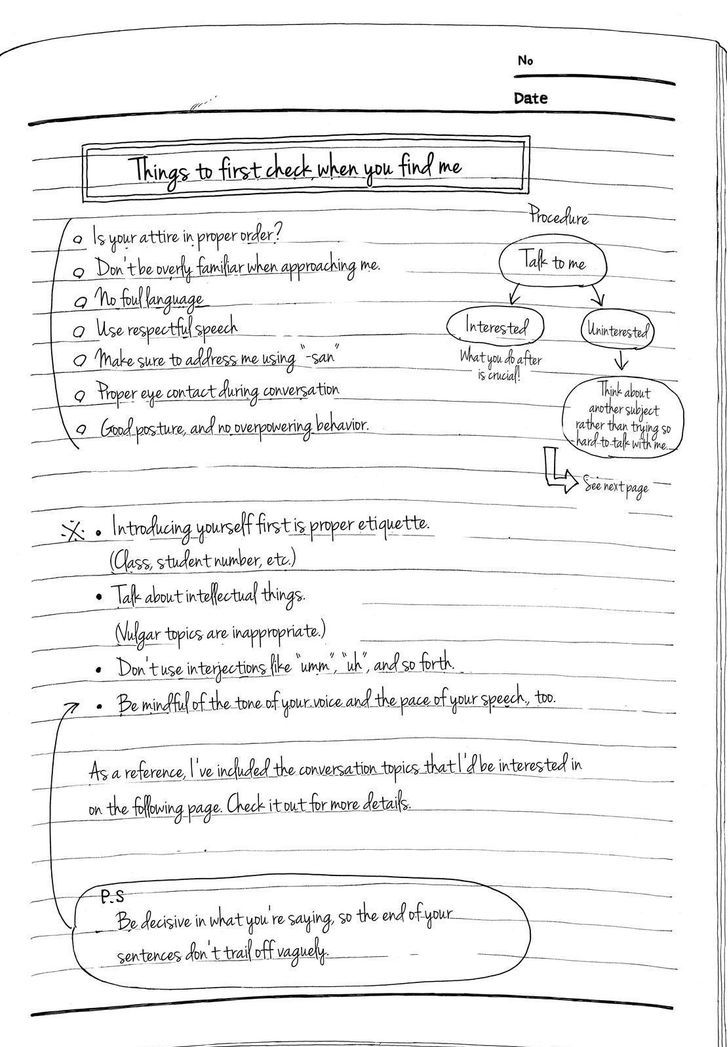 No
Date
Things to first check when you find me
o Is your attire in proper order?
o Don't be overly familiar when approaching me.
o No foul language
o Use respectful speech
o Make sure to address me using "-san"
o Proper eye contact during conversation
o Good posture, and no overpowering behavior.
Procedure
Talk to me
Interested
Uninterested
What you do after
is crucial!
Think about
another subject
rather than trying so
hard to talk with me...
See next page
※ • Introducing yourself first is proper etiquette.
(Class, student number, etc.)
• Talk about intellectual things.
(Vulgar topics are inappropriate.)
• Don't use interjections like "umm", "uh", and so forth.
• Be mindful of the tone of your voice and the pace of your speech, too.
As a reference, I've included the conversation topics that I'd be interested in
on the following page. Check it out for more details.
P.S
Be decisive in what you're saying, so the end of your
sentences don't trail off vaguely.